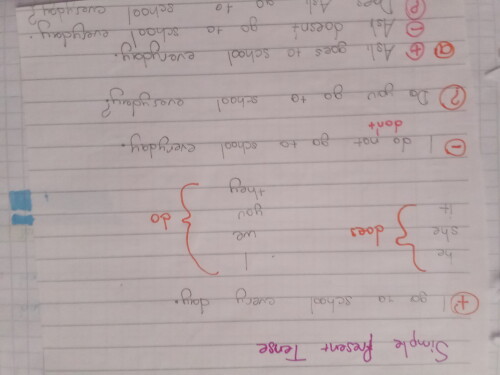 Simple Present Tense
+ I go to school every day.
he I
she does we do
it you
they
- I do not go to school everyday.
don't
? Do you go to school everyday?
a + Aslı goes to school everyday.
- Aslı doesn't go to school everyday.
? Does Aslı go to school everyday?